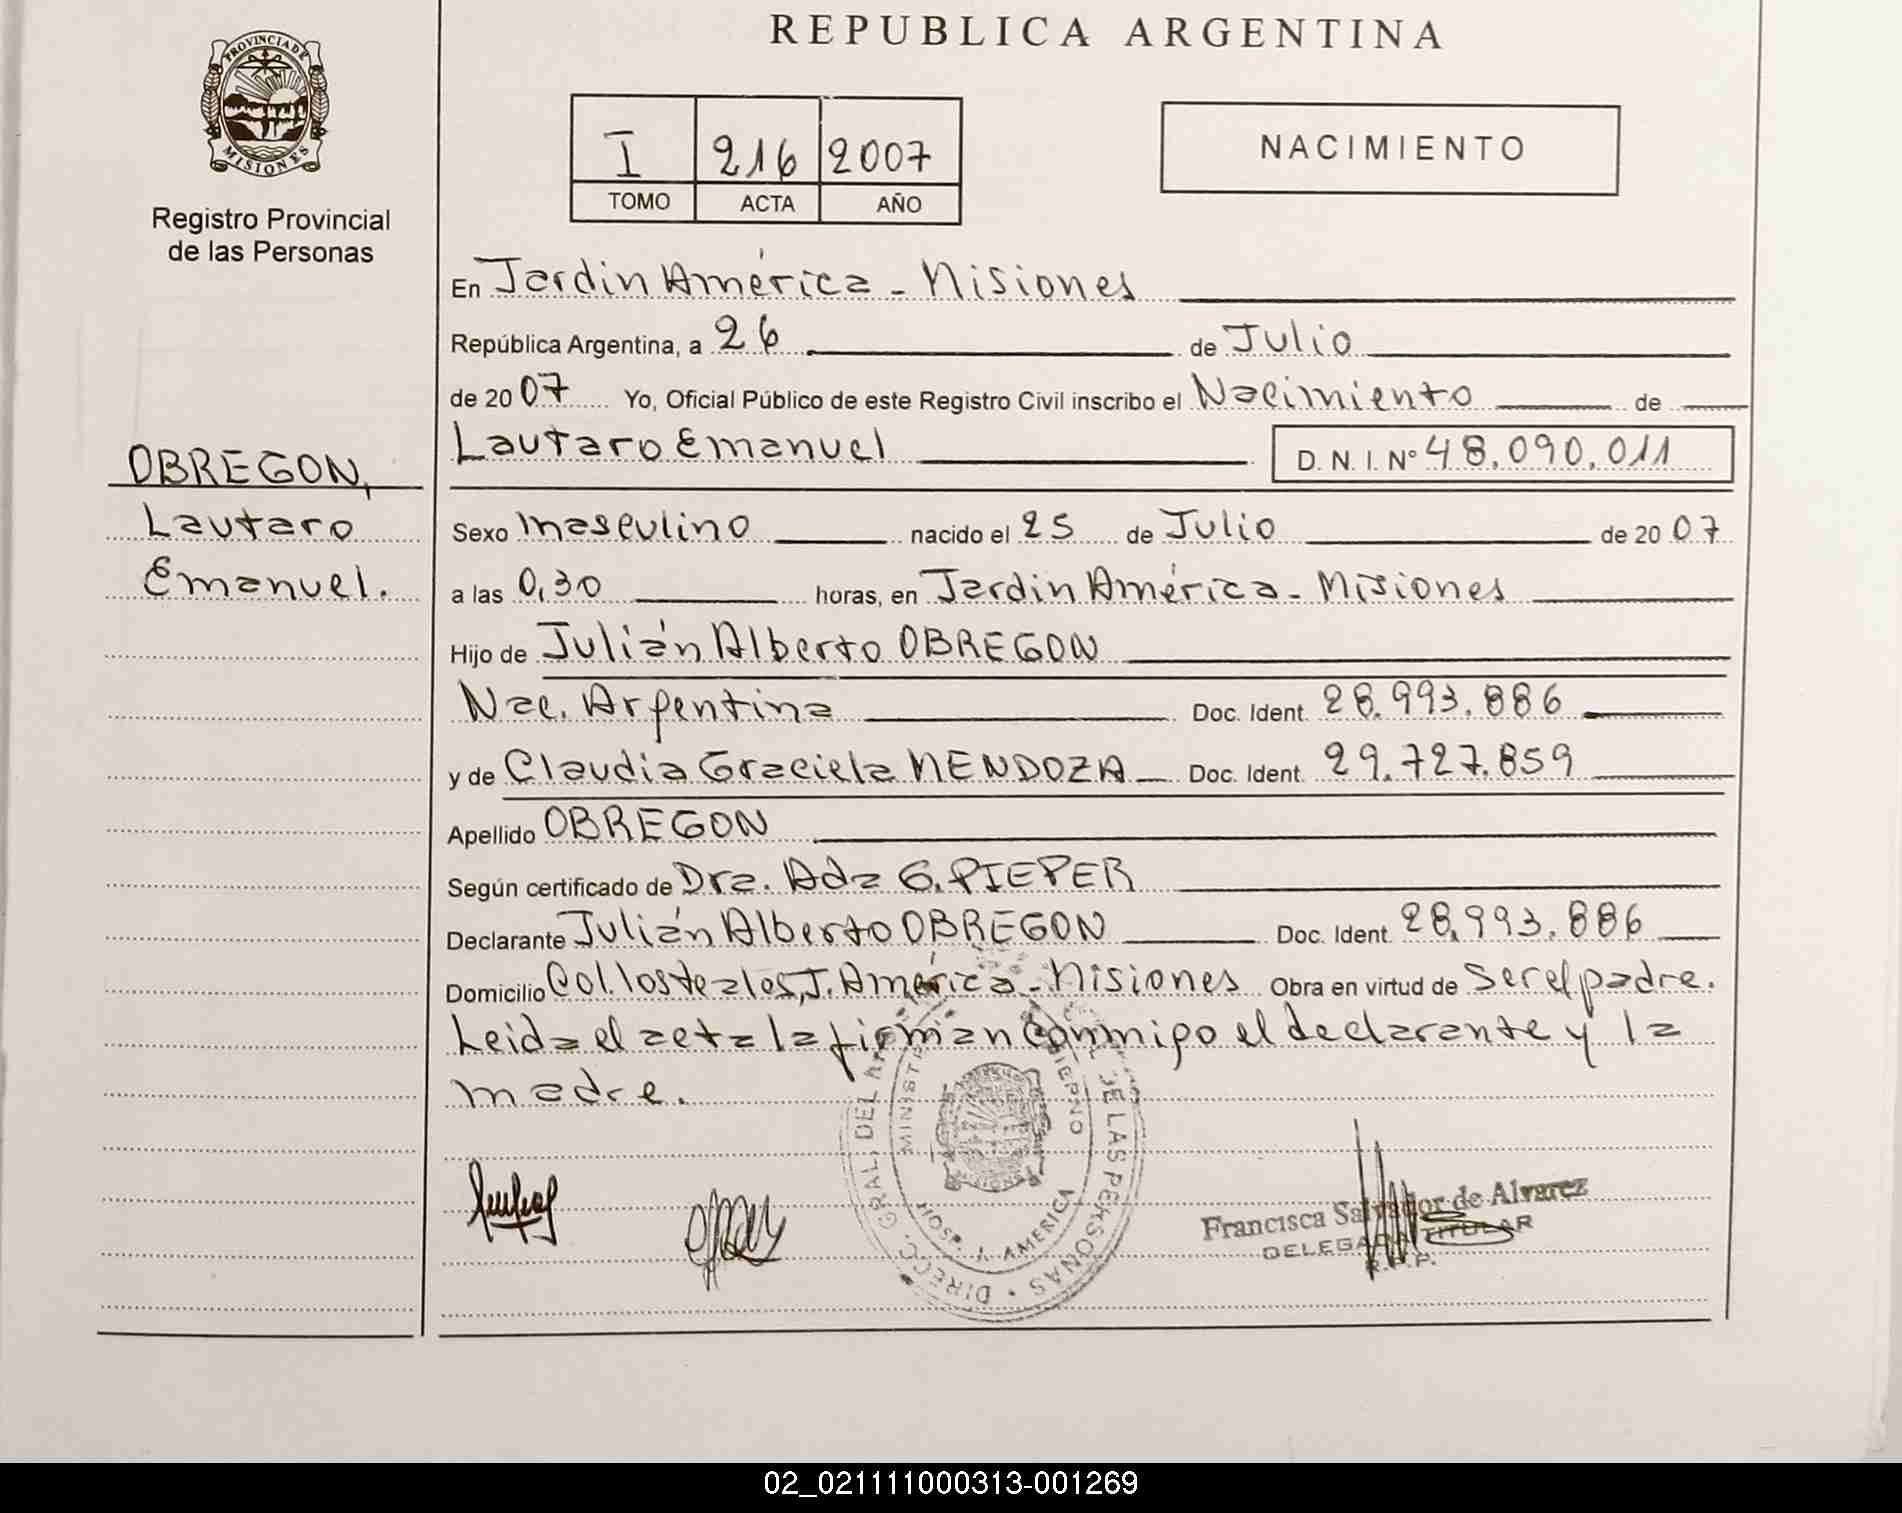 REPUBLICA ARGENTINA
PROVINCIA DE
MISIONES
Registro Provincial
de las Personas
I 216 2007
TOMO ACTA AÑO
NACIMIENTO
En Jardin América - Misiones
República Argentina, a 26 de Julio
de 2007 Yo, Oficial Público de este Registro Civil inscribo el Nacimiento de
Lautaro Emanuel D. N. I. Nº 48.090.011
OBREGON,
Lautaro
Emanuel.
Sexo masculino nacido el 25 de Julio de 2007
a las 0,30 horas, en Jardin América - Misiones
Hijo de Julián Alberto OBREGON
Nac. Argentina Doc. Ident. 28.993.886
y de Claudia Graciela MENDOZA Doc. Ident. 29.727.859
Apellido OBREGON
Según certificado de Dra. Ada G. PIEPER
Declarante Julián Alberto OBREGON Doc. Ident. 28.993.886
Domicilio Col. los tealos, J. América - Misiones Obra en virtud de Ser el padre.
Leida el acta la firman conmigo el declarante y la
madre.
DIRECC. GRAL. DEL DE LAS PERSONAS
HOSP. J. AMERICA
Francisca Salvador de Alvarez
DELEGADA TITULAR
R.P.P.
02_021111000313-001269